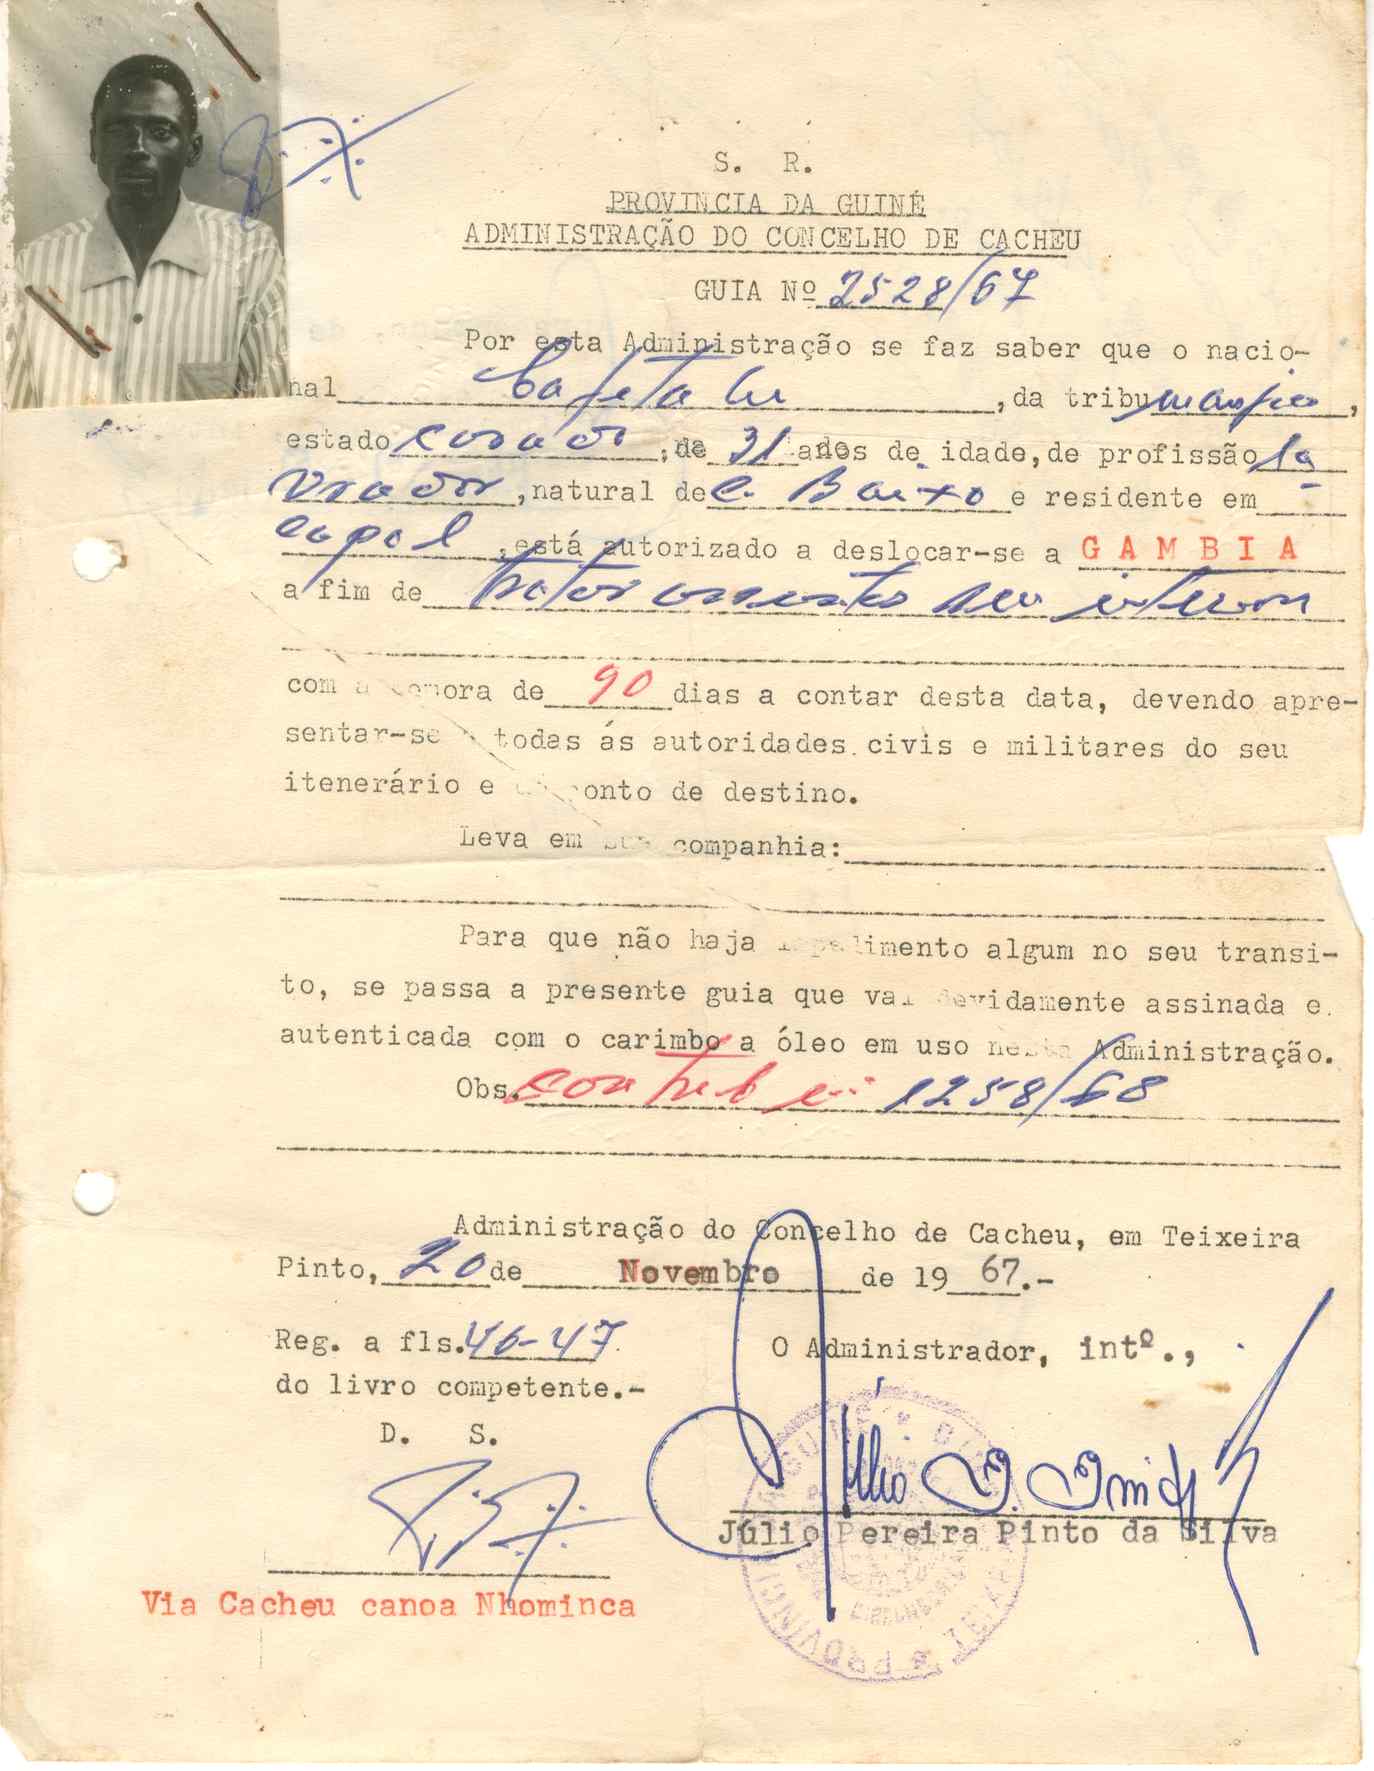 S. R.
PROVINCIA DA GUINÉ
ADMINISTRAÇÃO DO CONCELHO DE CACHEU
GUIA Nº 2528/67
Por esta Administração se faz saber que o nacio-
nal, da tribu
estado casado, de 31 anos de idade, de profissão la
vrador, natural de C. Baixo e residente em
, está autorizado a deslocar-se a GAMBIA
a fim de
com a demora de 90 dias a contar desta data, devendo apre-
sentar-se a todas ás autoridades civis e militares do seu
itenerário e do ponto de destino.
Leva em sua companhia:
Para que não haja impedimento algum no seu transi-
to, se passa a presente guia que vai devidamente assinada e
autenticada com o carimbo a óleo em uso nesta Administração.
Obs. 1258/68
Administração do Concelho de Cacheu, em Teixeira
Pinto, 20 de Novembro de 1967.-
Reg. a fls. 46-47. O Administrador, intº.,
do livro competente.-
D. S.
Júlio Pereira Pinto da Silva
Via Cacheu canoa Nhominca